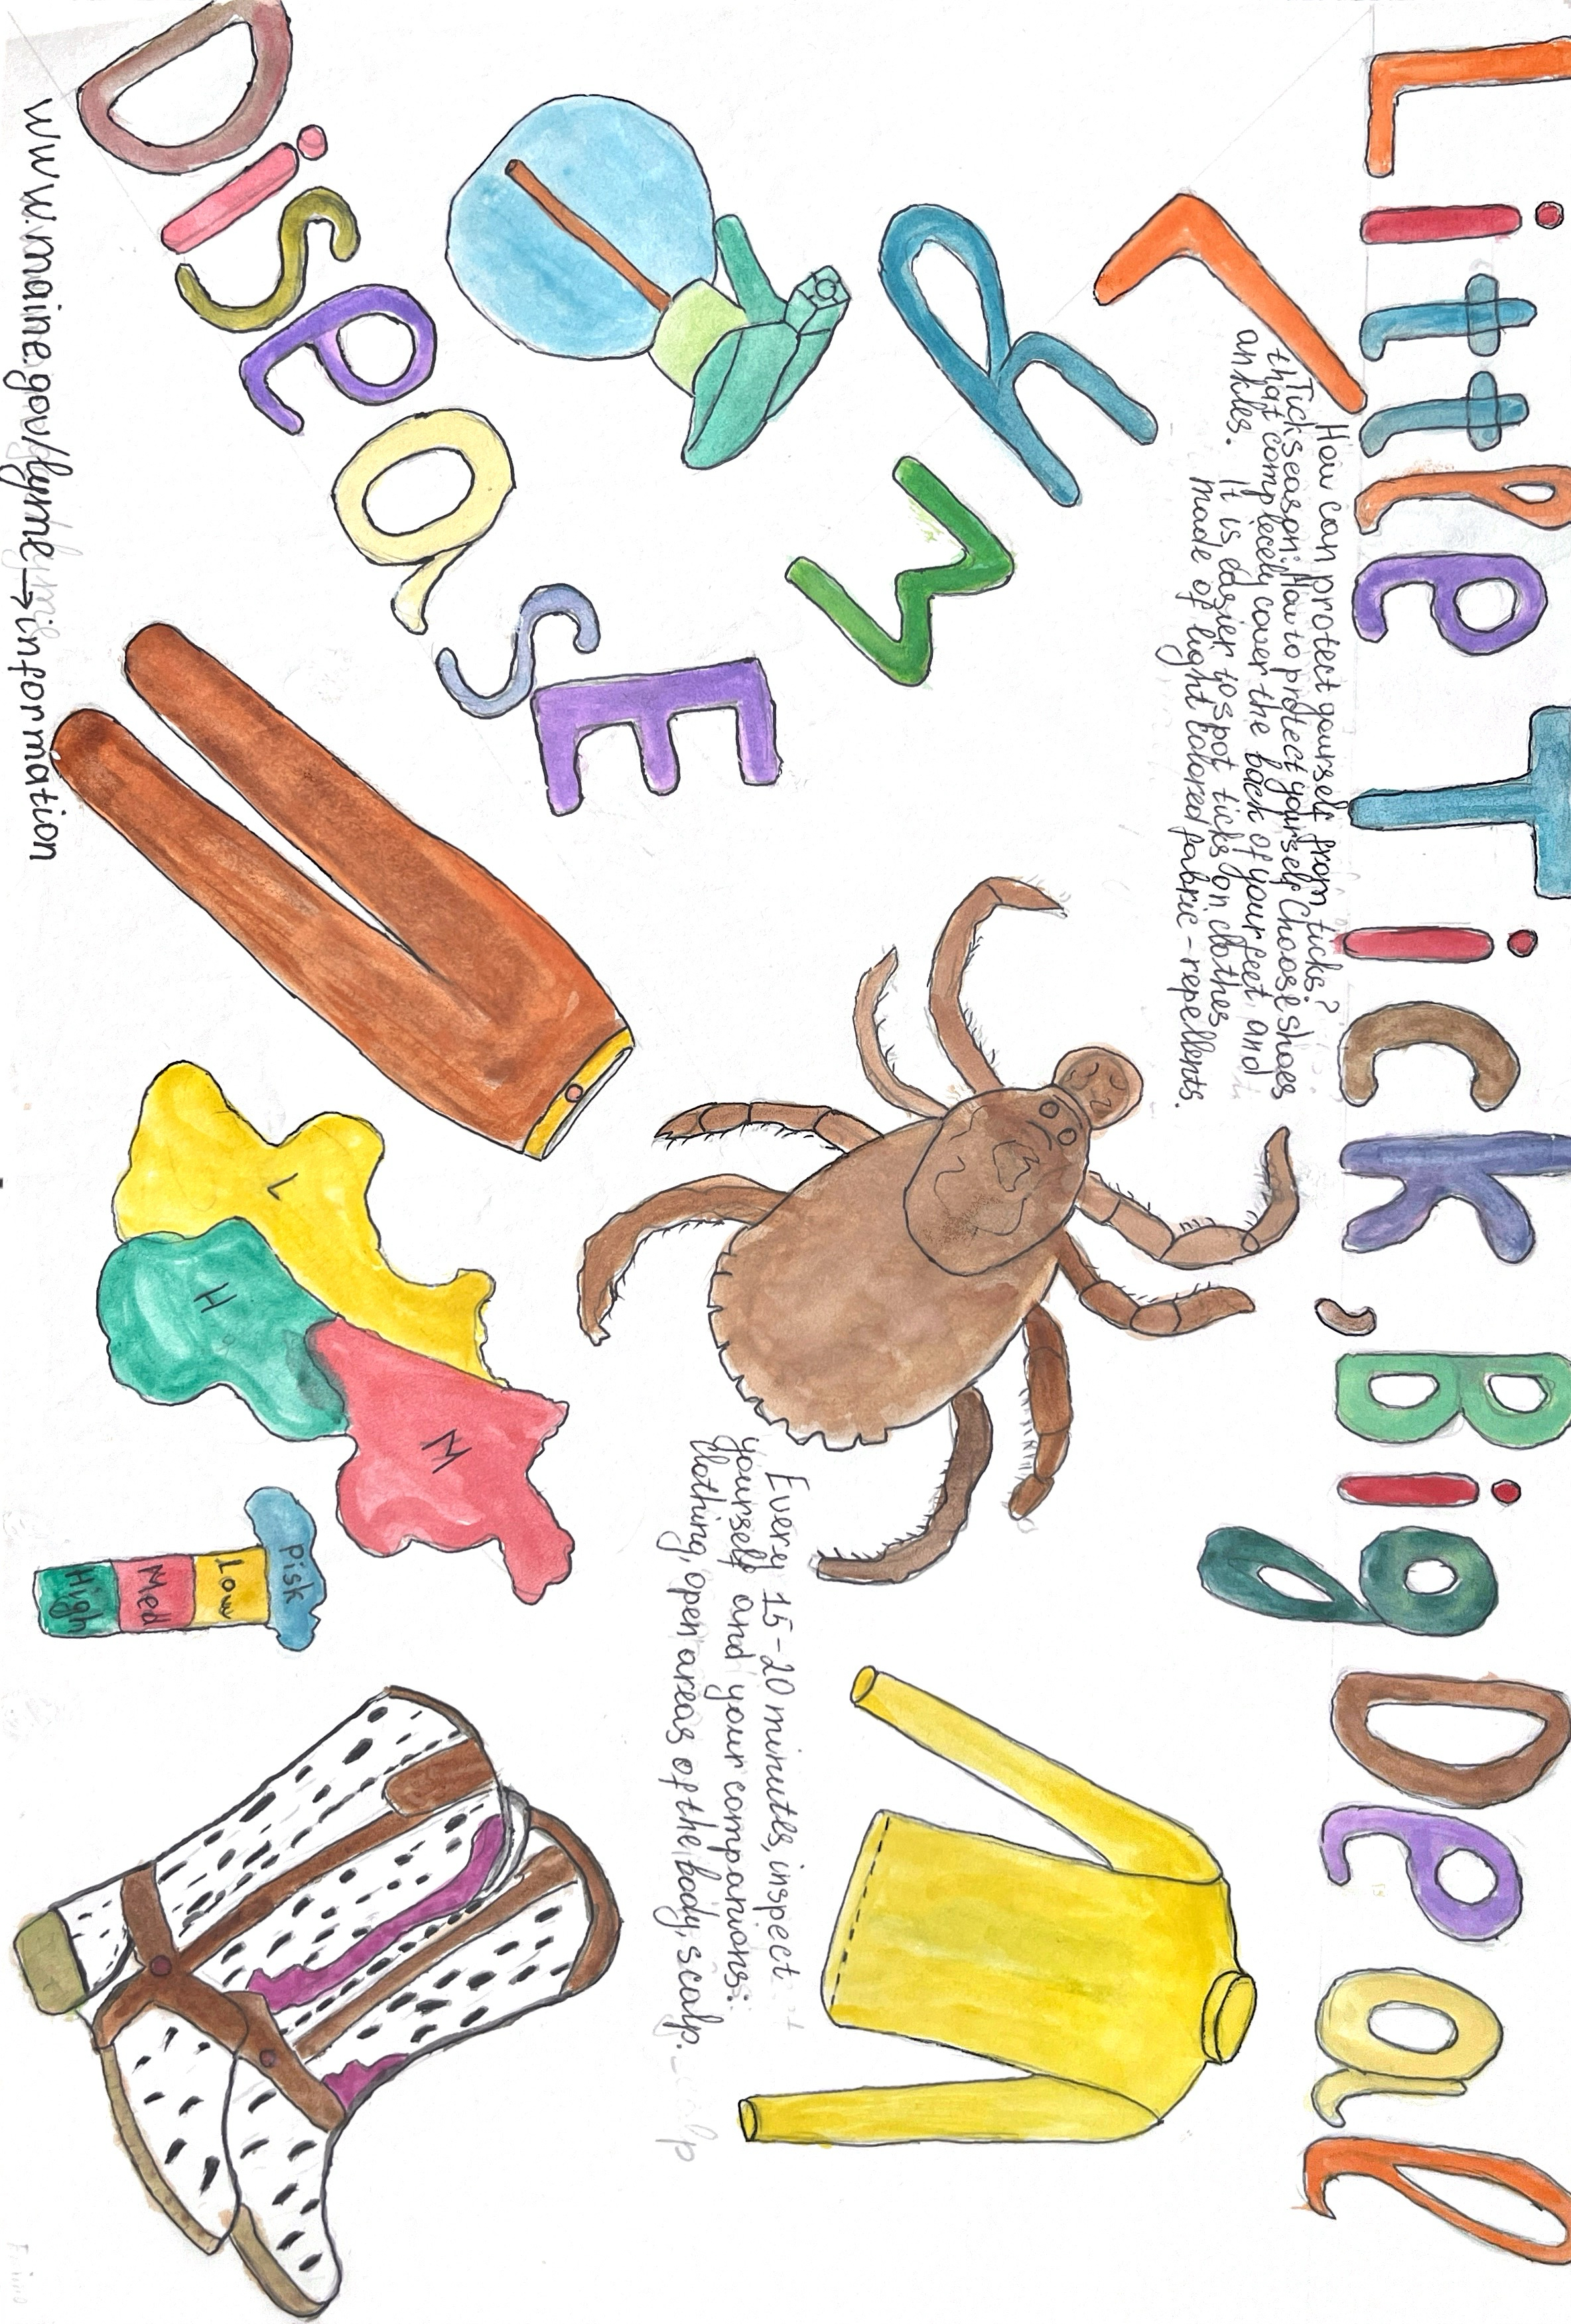 Little Tick, Big Deal
LyM
DiseasE
How can protect yourself from ticks?
Tick season: How to protect yourself Choose shoes
that complecely cover the back of your feet and
ankles. It is easier to spot ticks on clothes
made of light colored fabric - repellents.
Every 15-20 minutes, inspect
yourself and your companions:
clothing, open areas of the body, scalp.
L
H
M
Risk
Low
Med
High
www.maine.gov/lyme → information